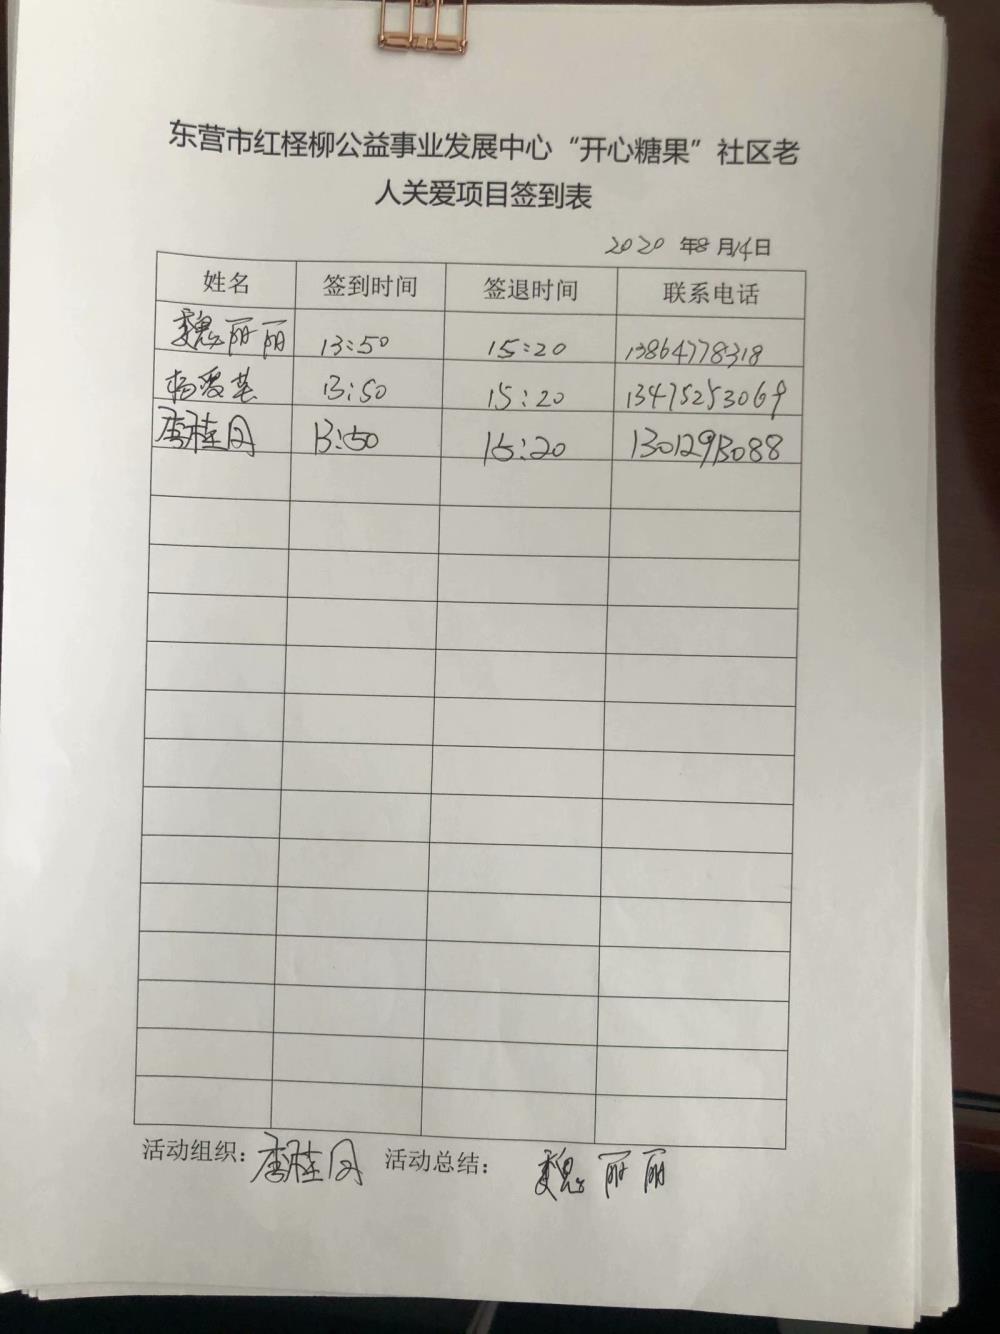 东营市红柽柳公益事业发展中心“开心糖果”社区老
人关爱项目签到表
2020 年8 月14日
姓名 签到时间 签退时间 联系电话
魏丽丽 13:50 15:20 13864778318
杨爱英 13:50 15:20 13475253069
李桂同 13:50 15:20 13012913088
活动组织：李桂同 活动总结： 魏丽丽